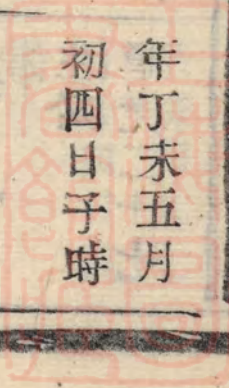 年丁未五月
初四日子時